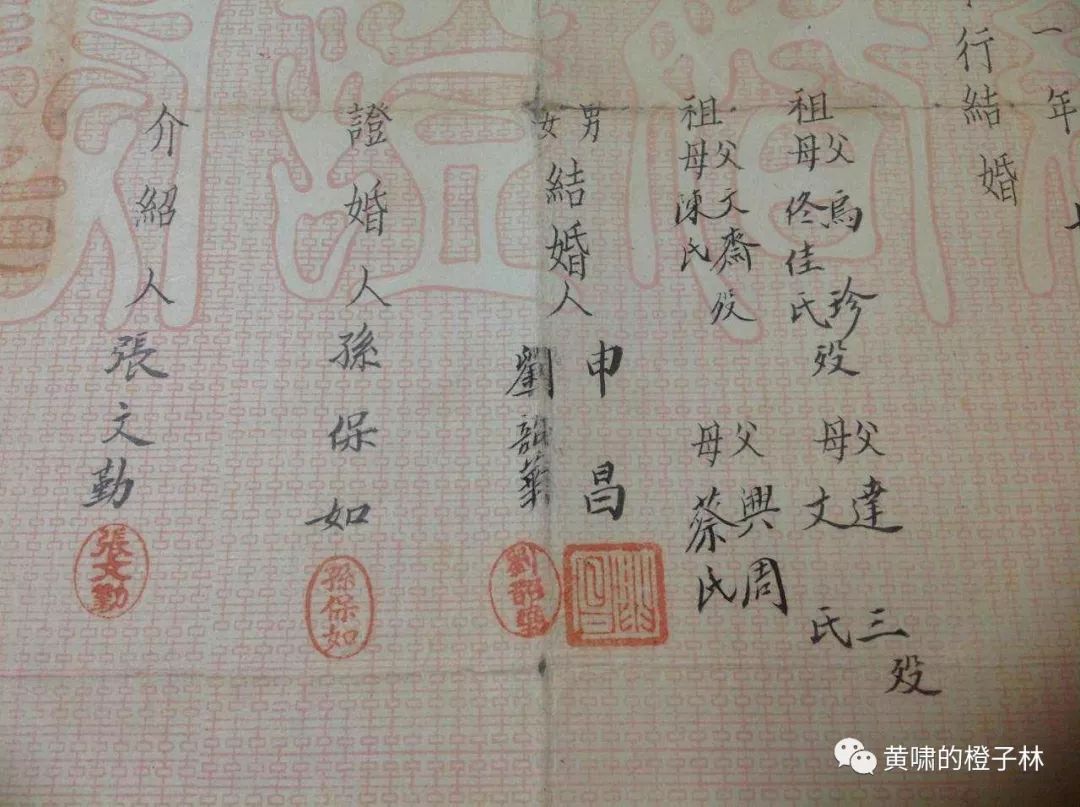 一年
行結婚
祖父烏珍歿
母佟佳氏
父達三歿
母文氏
祖父文齋歿
母陳氏
父興周
母蔡氏
男女結婚人
申昌
劉韶華
劉韶華
證婚人孫保如
孫保如
介紹人張文勤
張文勤
黄啸的橙子林